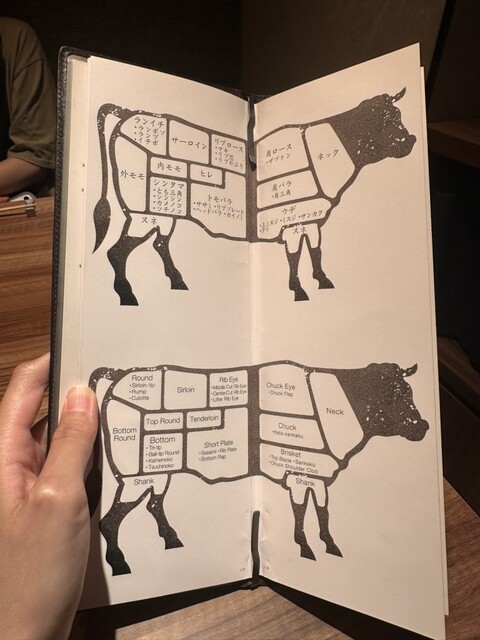 ランイチ
・ランボソ
・ランプ
・イチボ
サーロイン
リブロース
・マキ
・リブ芯
肩ロース
・ザブトン
ネック
外モモ
内モモ
ヒレ
シンタマ
・トモ三角
・シンシン
・カメノコ
・ツチノコ
トモバラ
・ササミ・リブプレート
・ヘッドバラ・カイノミ
肩バラ
・肩三角
ウデ
・ミスジ・サンカク
スネ
スネ
Round
・Sirloin-tip
・Rump
・Culotte
Sirloin
Rib Eye
・Middle Cut Rib Eye
・Center-Cut Rib Eye
・Lifter Rib Eye
Chuck Eye
・Chuck Flap
Neck
Bottom
Round
Top Round
Tenderloin
Bottom
・Tri-tip
・Ball-tip Round
・Kamenoko
・Tsuchinoko
Short Plate
・Sasami・Rib Plate
・Bottom Rib
Chuck
・Kata-sankaku
Brisket
・Top Blade・Sankaku
・Chuck Shoulder Clod
Shank
Shank